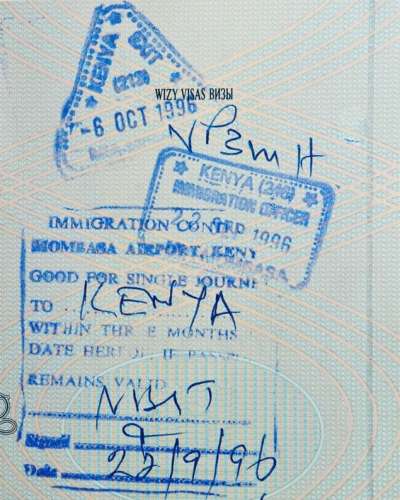 KENYA
OUT
(213)
-6 OCT 1996
WIZY VISAS ВИЗЫ
KENYA (346)
IMMIGRATION OFFICER
1996
MOMBASA
IMMIGRATION CONT
MOMBASA AIRPORT, KENY
GOOD FOR SINGLE JOURNE
TO KENYA
WITHIN THREE MONTHS
DATE HEREOF IF PASSP
REMAINS VALID
Signed
Date 22/9/96